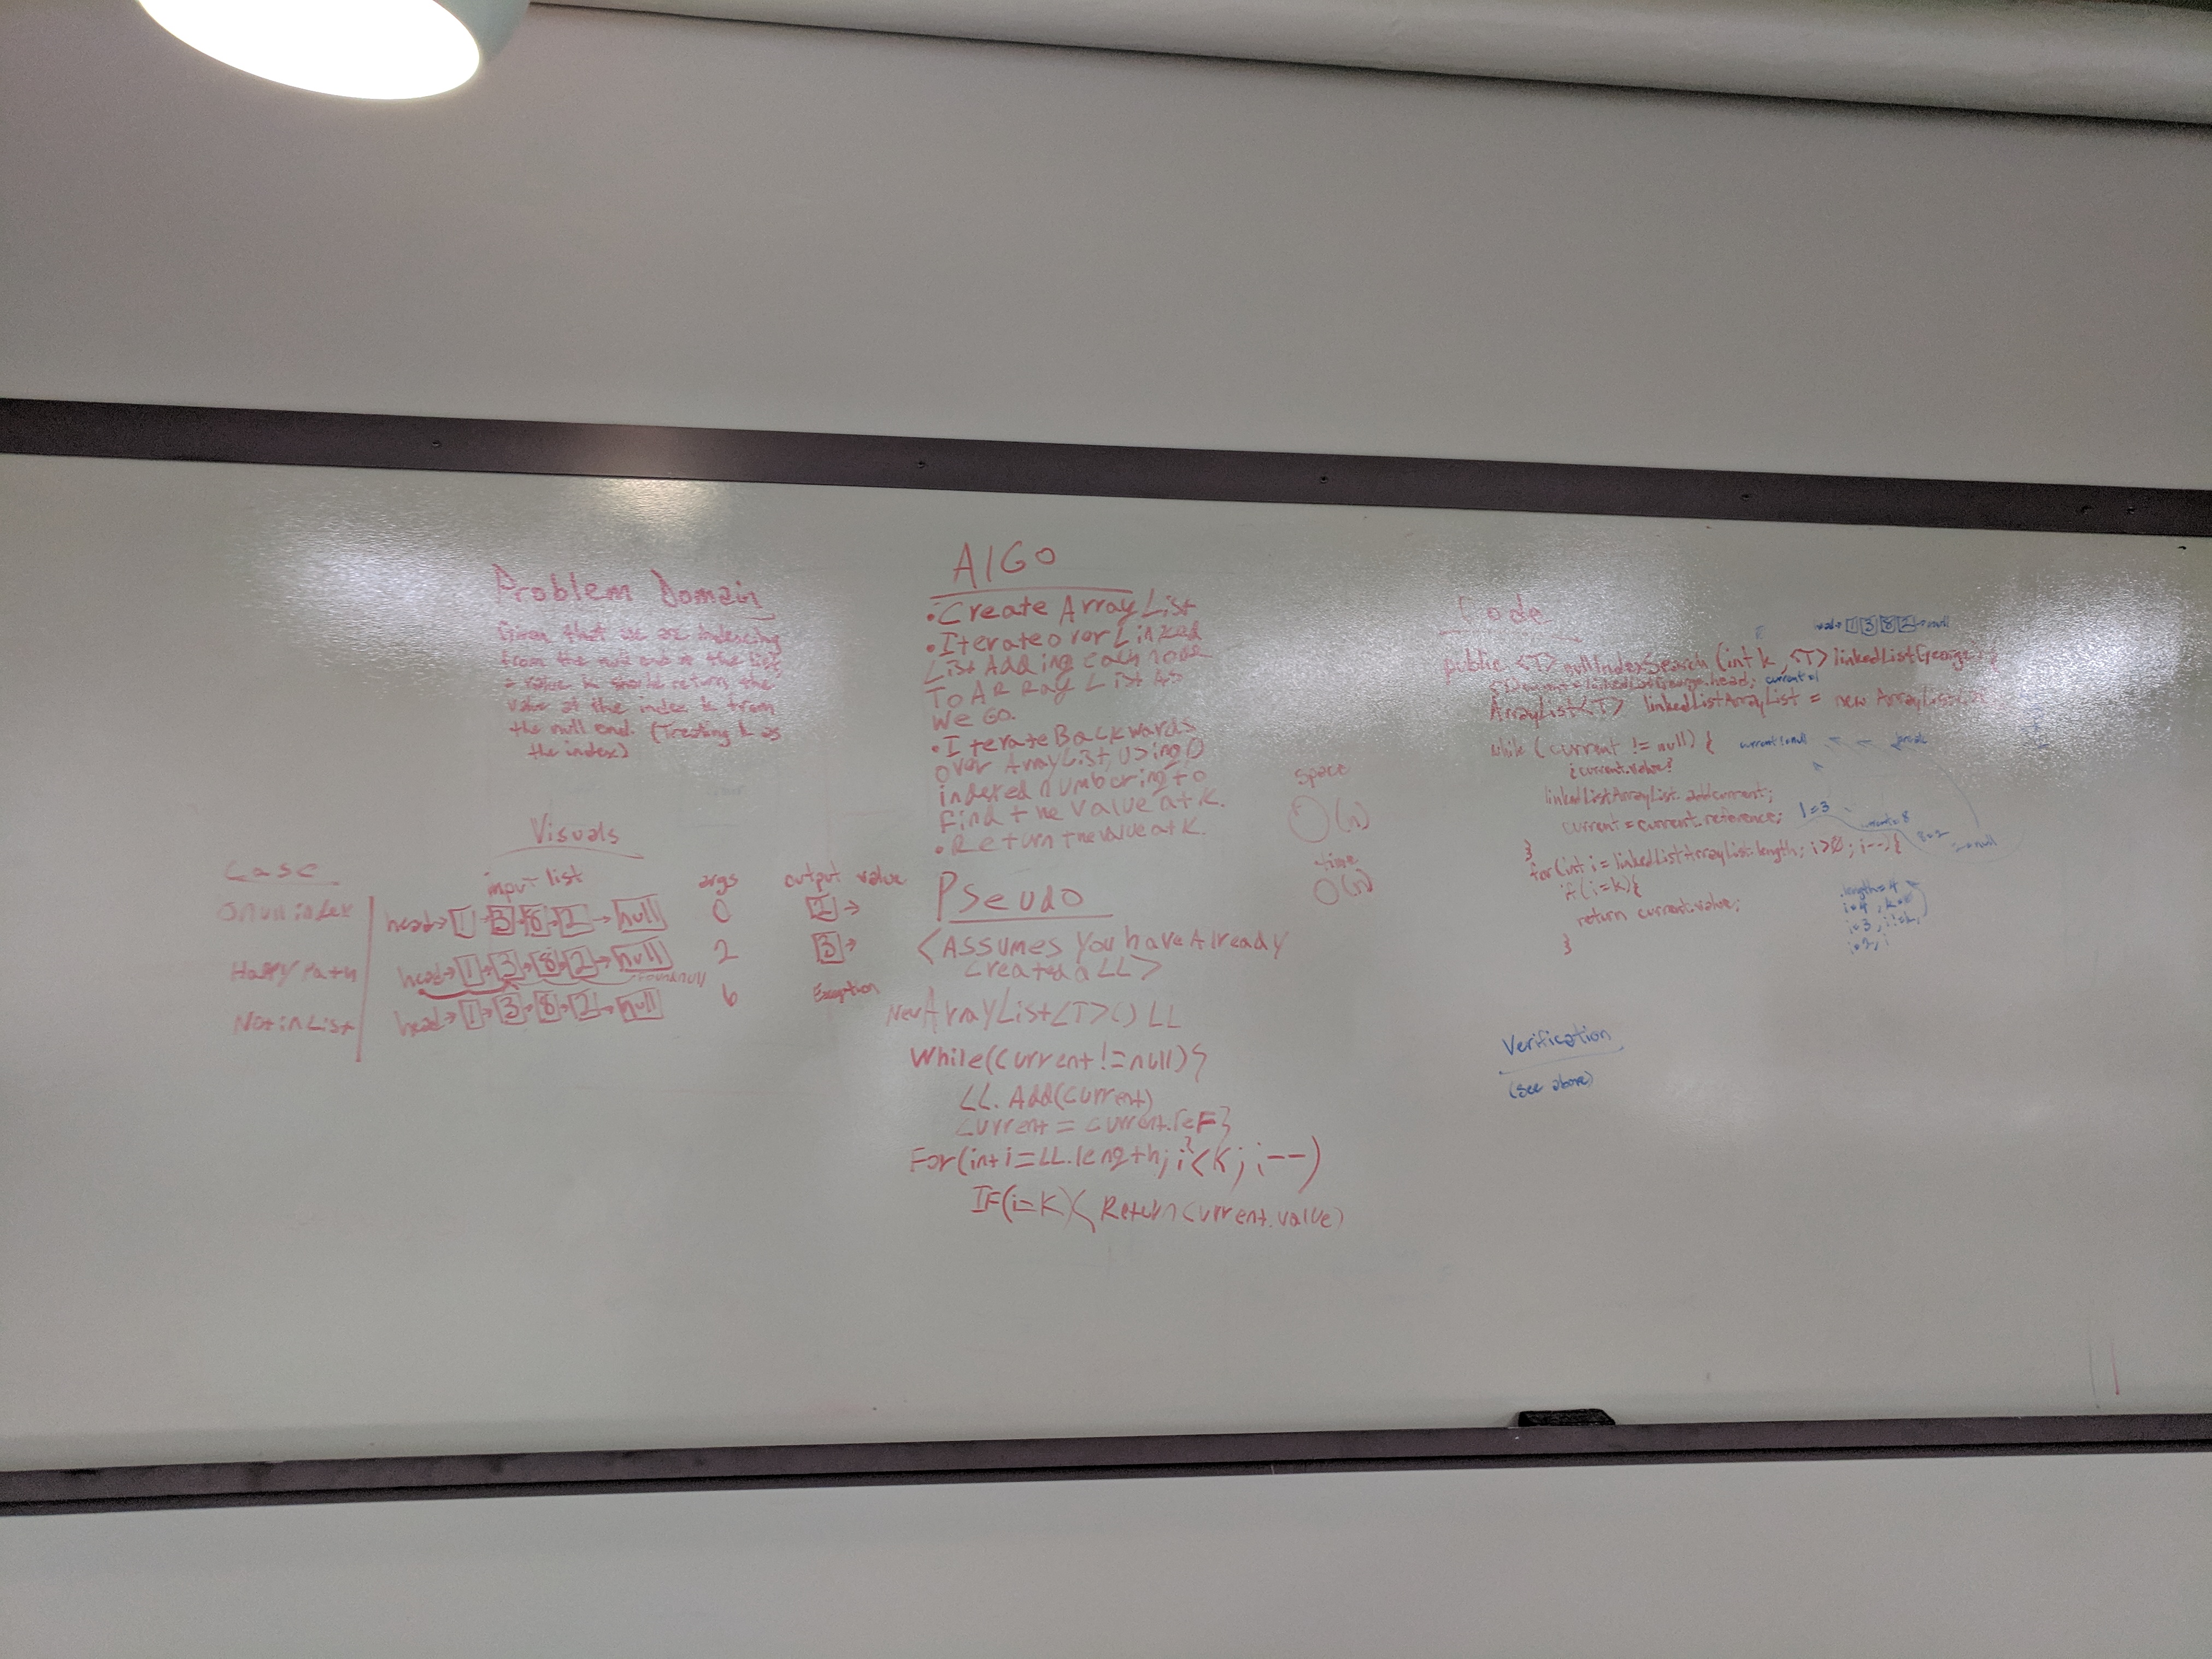 Problem Domain
Given that we are indexing
from the null end of the list,
a value k should return the
value at the index k from
the null end. (Treating k as
the index)
Visuals
Case
input list
args
output value
head→ 1 → 3 → 8 → 2 → null
0
2 →
Happy Path
head→ 1 → 3 → 8 → 2 → null
2
3 →
Not in List
head→ 1 → 3 → 8 → 2 → null
6
Exception
AlGo
• Create Array List
• Iterate over Linked
List Adding each node
To ARRay List As
We Go.
• Iterate Backwards
over ArrayList, using 0
indexed numbering to
find the value at K.
• Return the value at K.
space
O(n)
time
O(n)
Pseudo
<Assumes You have Already
created a LL>
New ArrayList<T>() LL
While(current != null){
LL. Add(current)
current = current.reF}
For(int i = LL.length; i < K; i--)
IF(i=K){ Return current.value}
Code
1 3 8 2 → null
public <T> nullIndexSearch (int k, <T> linkedListGeorge) {
linkedListGeorge.head; current=1
ArrayList<T> linkedListArrayList = new ArrayList
while (current != null) {
current != null
break
current.value?
linkedListArrayList.add current;
current = current.reference;
1=3
current=8
8=2
2=null
}
for(int i = linkedListArrayList.length; i>0; i--){
if (i=k){
return current.value;
}
length=4
i=4, k=
i=3, i!=k,
i=2, i
Verification
(see above)